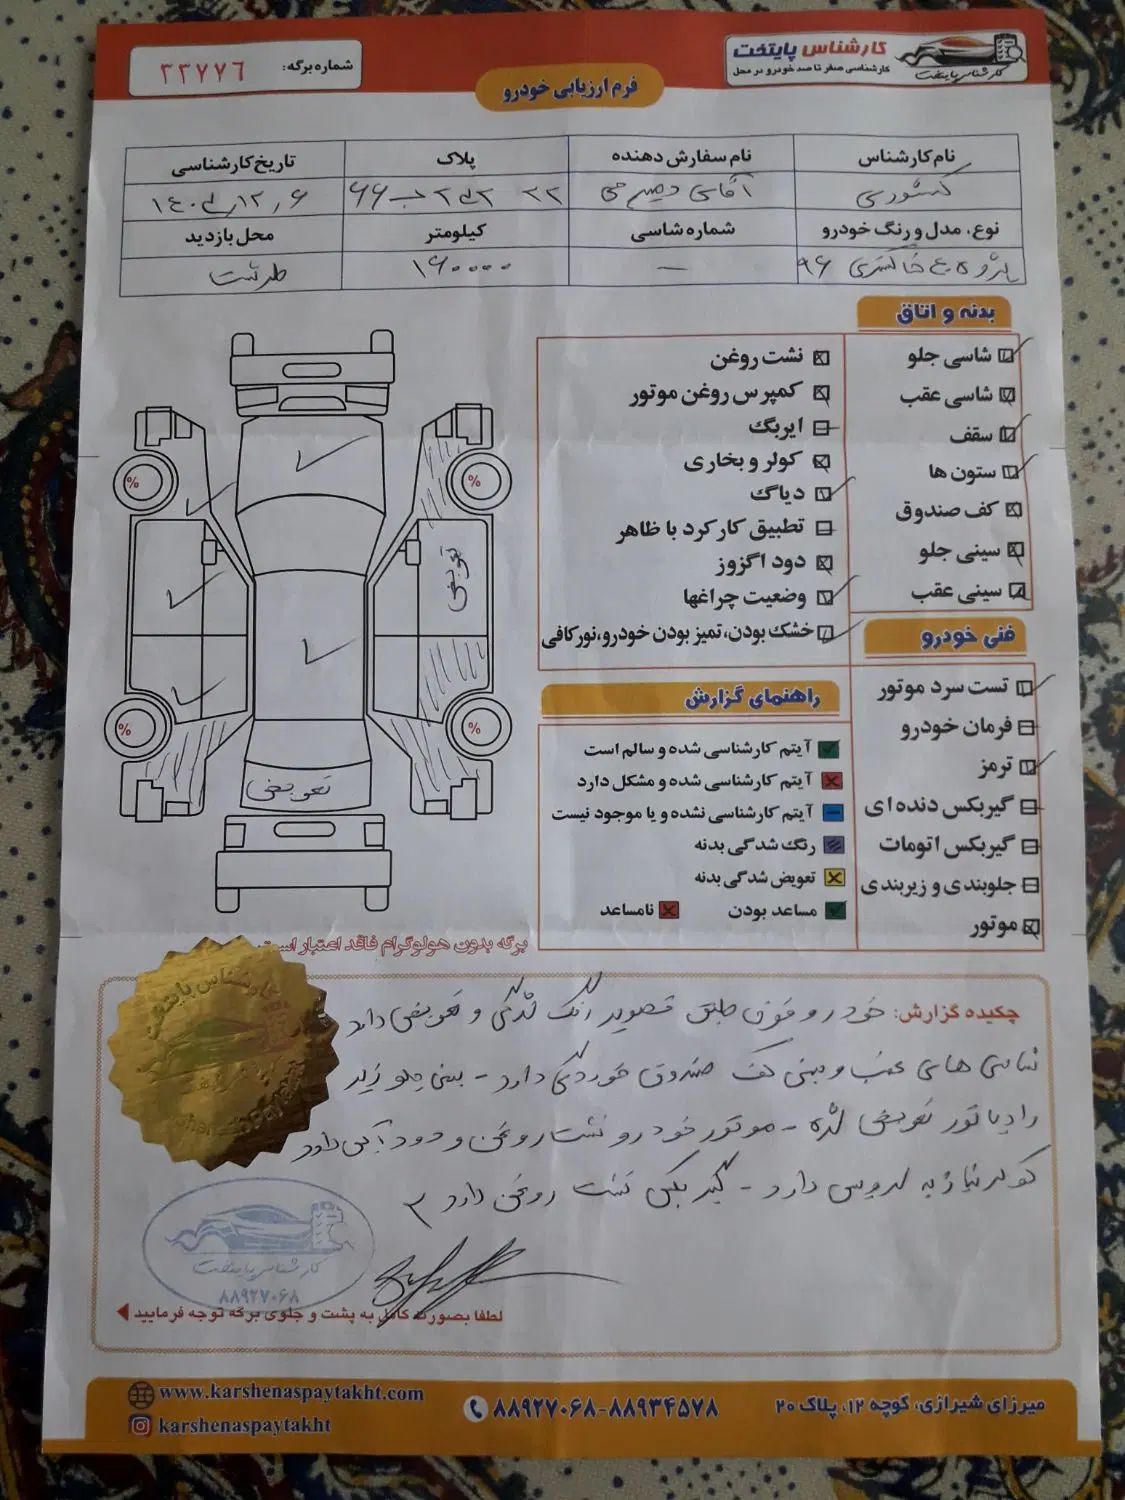 کارشناس پایتخت
کارشناسی صفر تا صد خودرو در محل
کارشناس پایتخت
شماره برگه: ۳۳۷۷۶
فرم ارزیابی خودرو
نام کارشناس نام سفارش دهنده پلاک تاریخ کارشناسی
کشوری آقای
نوع، مدل و رنگ خودرو شماره شاسی کیلومتر محل بازدید
پژو خاکستری ۹۶ — ۱۶۰۰۰۰ طرشت
بدنه و اتاق
شاسی جلو
شاسی عقب
سقف
ستون ها
کف صندوق
سینی جلو
سینی عقب
نشت روغن
کمپرس روغن موتور
ایربگ
کولر و بخاری
دیاگ
تطبیق کارکرد با ظاهر
دود اگزوز
وضعیت چراغها
خشک بودن، تمیز بودن خودرو، نورکافی
فنی خودرو
تست سرد موتور
فرمان خودرو
ترمز
گیربکس دنده ای
گیربکس اتومات
جلوبندی و زیربندی
موتور
راهنمای گزارش
آیتم کارشناسی شده و سالم است
آیتم کارشناسی شده و مشکل دارد
آیتم کارشناسی نشده و یا موجود نیست
رنگ شدگی بدنه
تعویض شدگی بدنه
مساعد بودن نامساعد
% %
تعویض
% %
تعویض
برگه بدون هولوگرام فاقد اعتبار است
چکیده گزارش: خودرو فوق طبق تصویر رنگ شدگی و تعویضی دارد
شاسی های عقب و سینی کف صندوق خوردگی دارد - سینی جلو زیر
رادیاتور تعویض شده - موتور خودرو نشت روغن و دود آبی دارد
کولر نیاز به سرویس دارد - گیربکس نشت روغن دارد
کارشناس پایتخت
۸۸۹۲۷۰۶۸
لطفا بصورت کامل به پشت و جلوی برگه توجه فرمایید
میرزای شیرازی، کوچه ۱۲، پلاک ۲۰
۸۸۹۲۷۰۶۸-۸۸۹۳۴۵۷۸
www.karshenaspaytakht.com
karshenaspaytakht